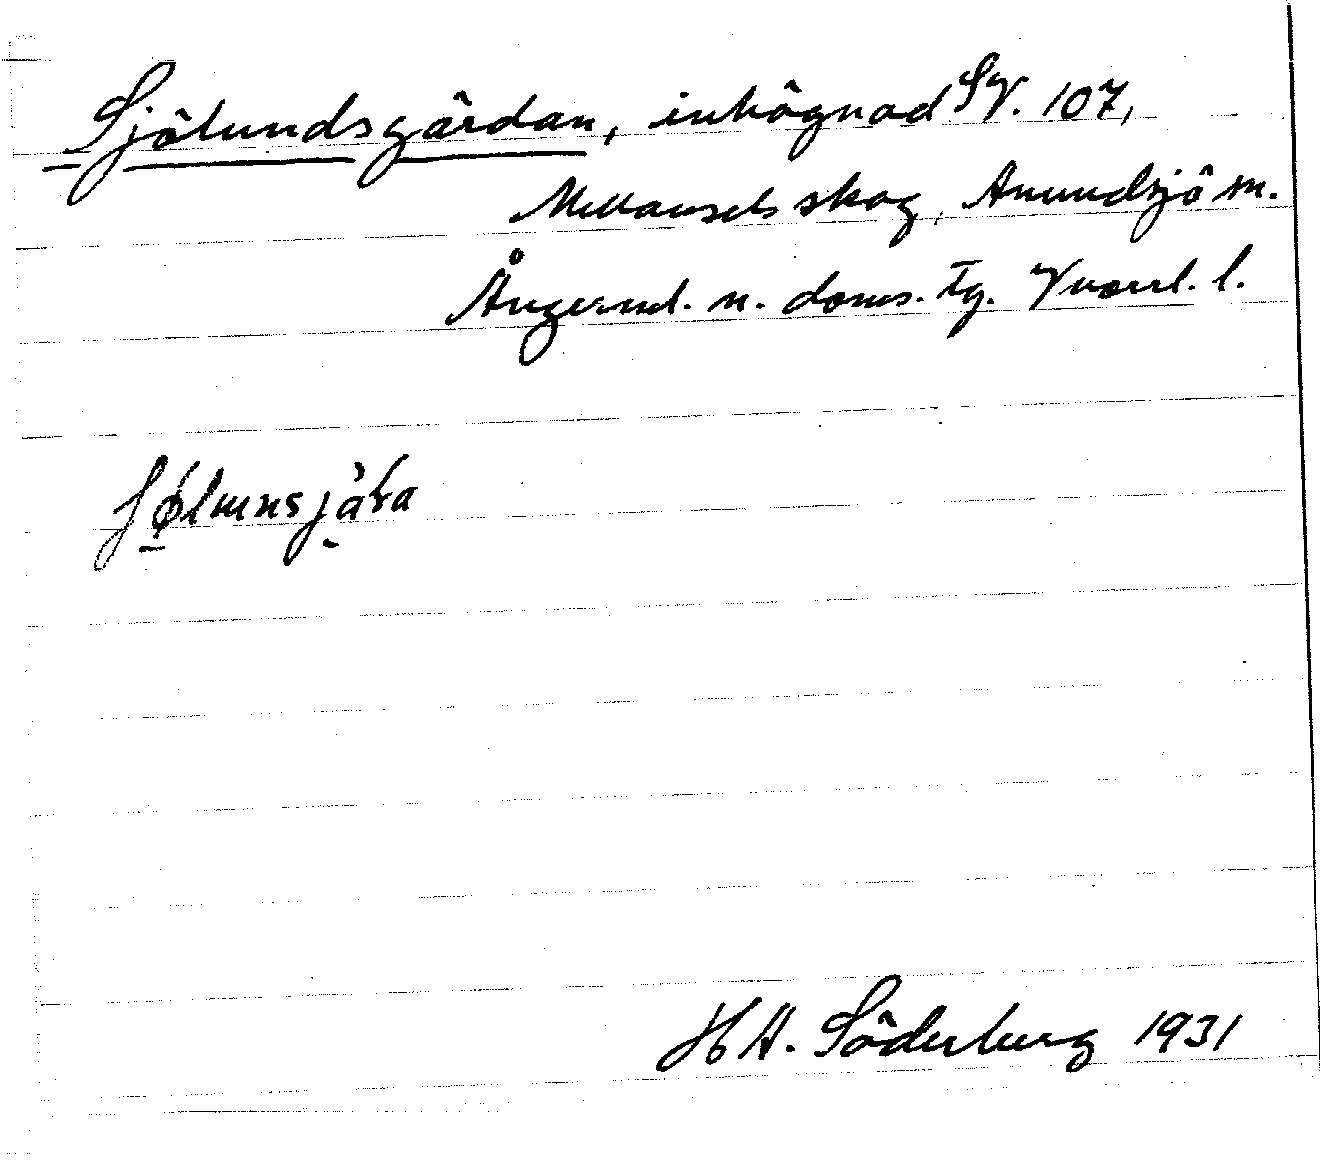 Sjölundsgärdan, inhägnad SV. 107,
Mellansels skog, Anundsjö sn.
Ångerml. n. doms. tg. Vnorrl. l.
ʃølunsjàɽa
H A. Söderberg 1931